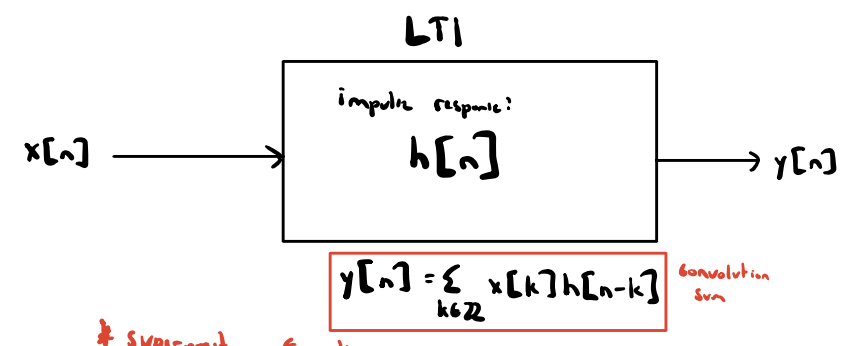 LTI
impulse response:
x[n]
h[n]
y[n]
y[n] = Σ x[k]h[n-k]
k∈ℤ
Convolution
Sum
*